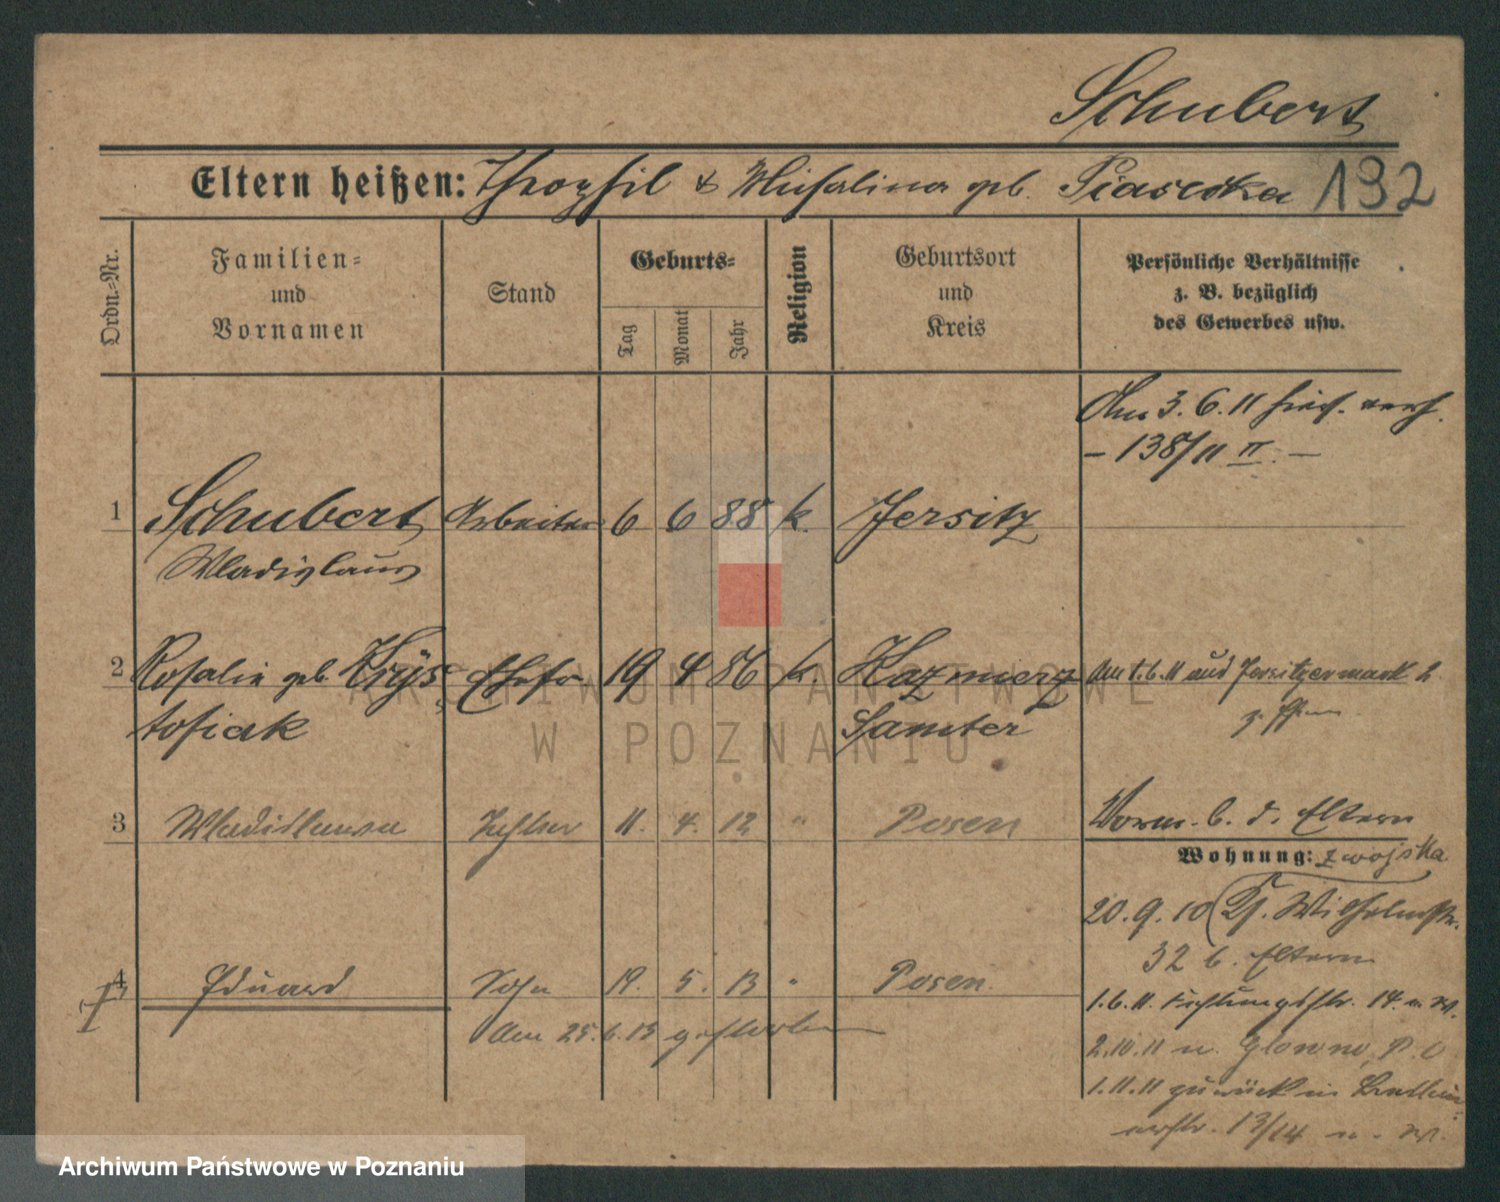 Schubert
Eltern heißen: Theophil & Michalina geb. Piasecka 132
Ordn.=Nr.
Familien=
und
Vornamen
Stand
Geburts=
Tag
Monat
Jahr
Religion
Geburtsort
und
Kreis
Persönliche Verhältnisse
z. B. bezüglich
des Gewerbes usw.
Am 3.6.11 hier
– 138/11 II. –
1 Schubert Arbeiter 6 6 88 k. Jersitz
Wladislaus
2 Rosalie geb. Krys Ehefr. 19 4 86 k. Kazmierz
tofiak Samter
Am 1.6.11 aus Jersitzermark 2
3 Wladislawa Tochter 11. 4. 12 " Posen
Vorm. b. d. Eltern
Wohnung: z wojska
20.9.10 Wilhelmstr.
32 b. Eltern
4 Eduard Sohn 19. 5. 13 " Posen.
Am 25.6.13 gestorben
1.6.11. 14
2.10.11 n. Glowno, P. O
1.11.11 zurück in
13/14
ARCHIWUM PAŃSTWOWE
W POZNANIU
Archiwum Państwowe w Poznaniu